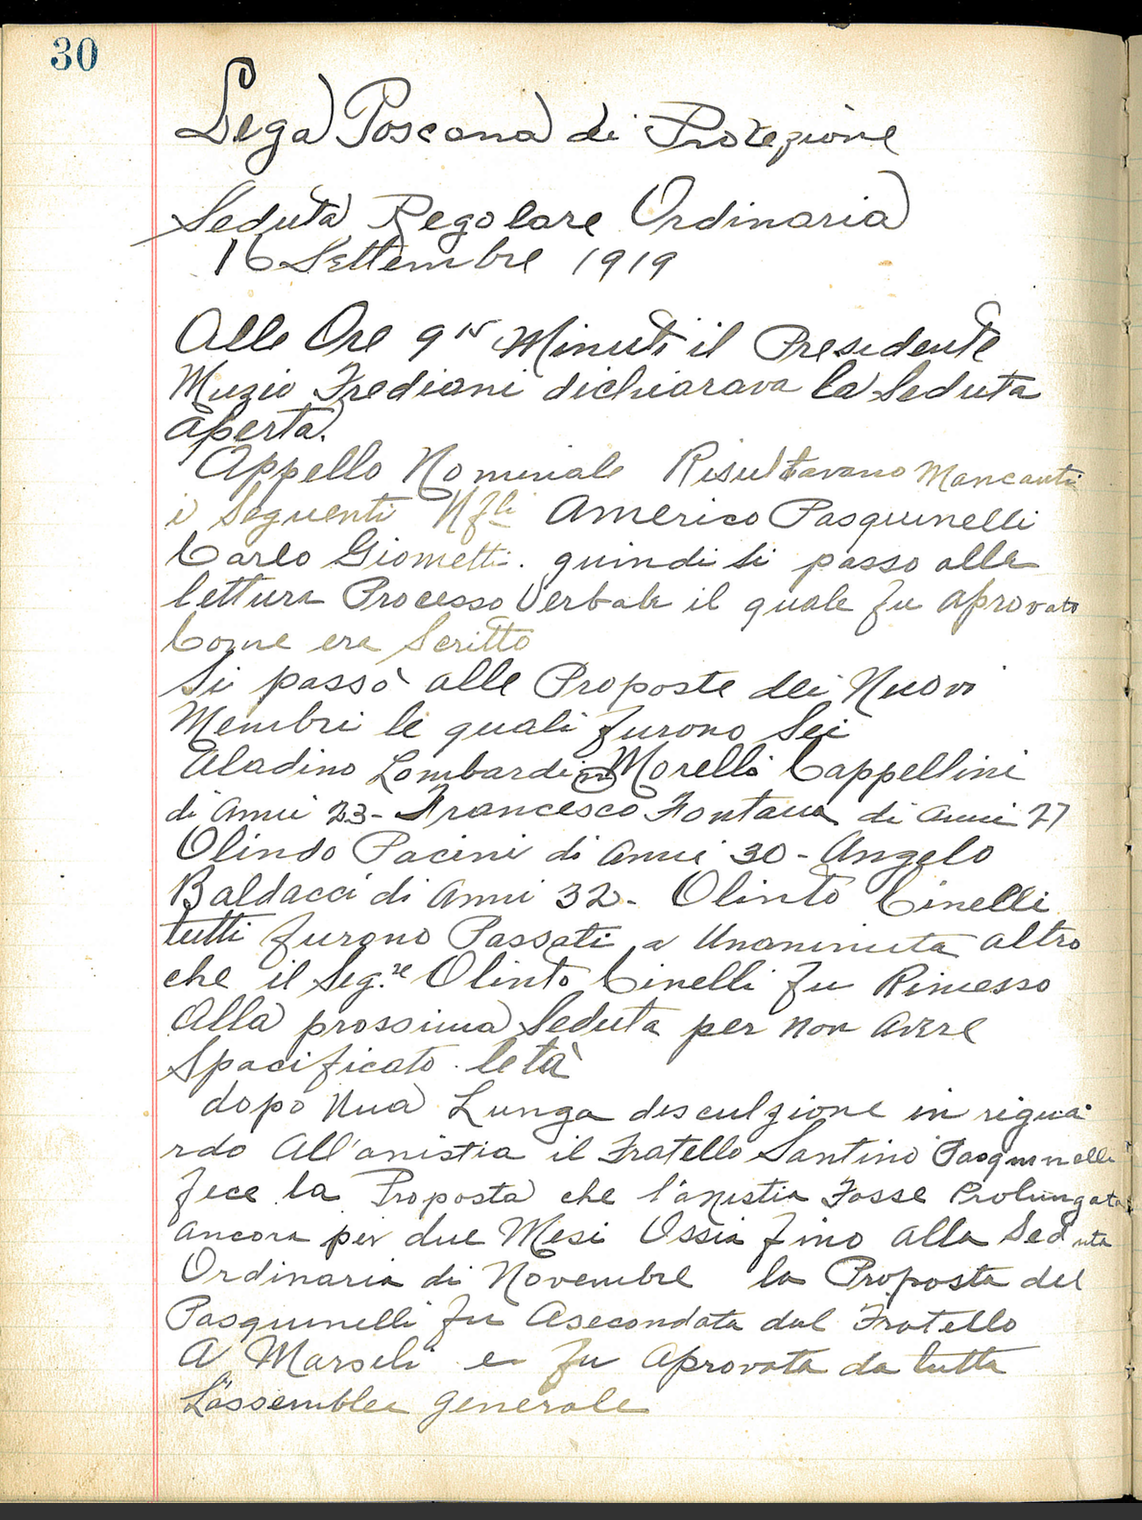 30
Lega Toscana di Protezione
Seduta Regolare Ordinaria
16 Settembre 1919
Alle Ore 9 Minuti il Presedente
Muzio Frediani dichiarava la Seduta
aperta.
Appello Nominale Risultavano Mancanti
i Seguenti Uffli Americo Pasquinelli
Carlo Giometti. quindi si passo alla
lettura Processo Verbale il quale fu aprovato
Come era Scritto
Si passò alle Proposte dei Nuovi
Membri le quali furono Sei
Aladino Lombardi Morello Cappellini
di anni 23 - Francesco Fontana di anni 27
Olindo Pacini di anni 30 - Angelo
Baldacci di anni 32 - Olinto Cinelli
tutti furono Passati a Unanimita altro
che il Seg.re Olinto Cinelli fu Rimesso
Alla prossima Seduta per non avere
Spacificato letà
dopo una Lunga disculzione in rigua
rdo All'anistia il Fratello Santino Pasquinelli
fece la Proposta che l'anistia Fosse Prolungata
ancora per due Mesi Ossia fino alla Seduta
Ordinaria di Novembre la Proposta del
Pasquinelli fu Asecondata dal Fratello
A Marseli e fu Aprovata da tutta
L'assemblea generale